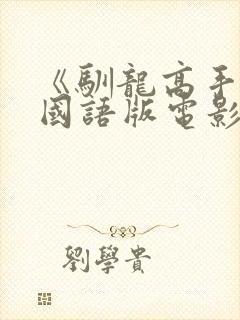 《馴龍高手
國語版電影
劉學貴